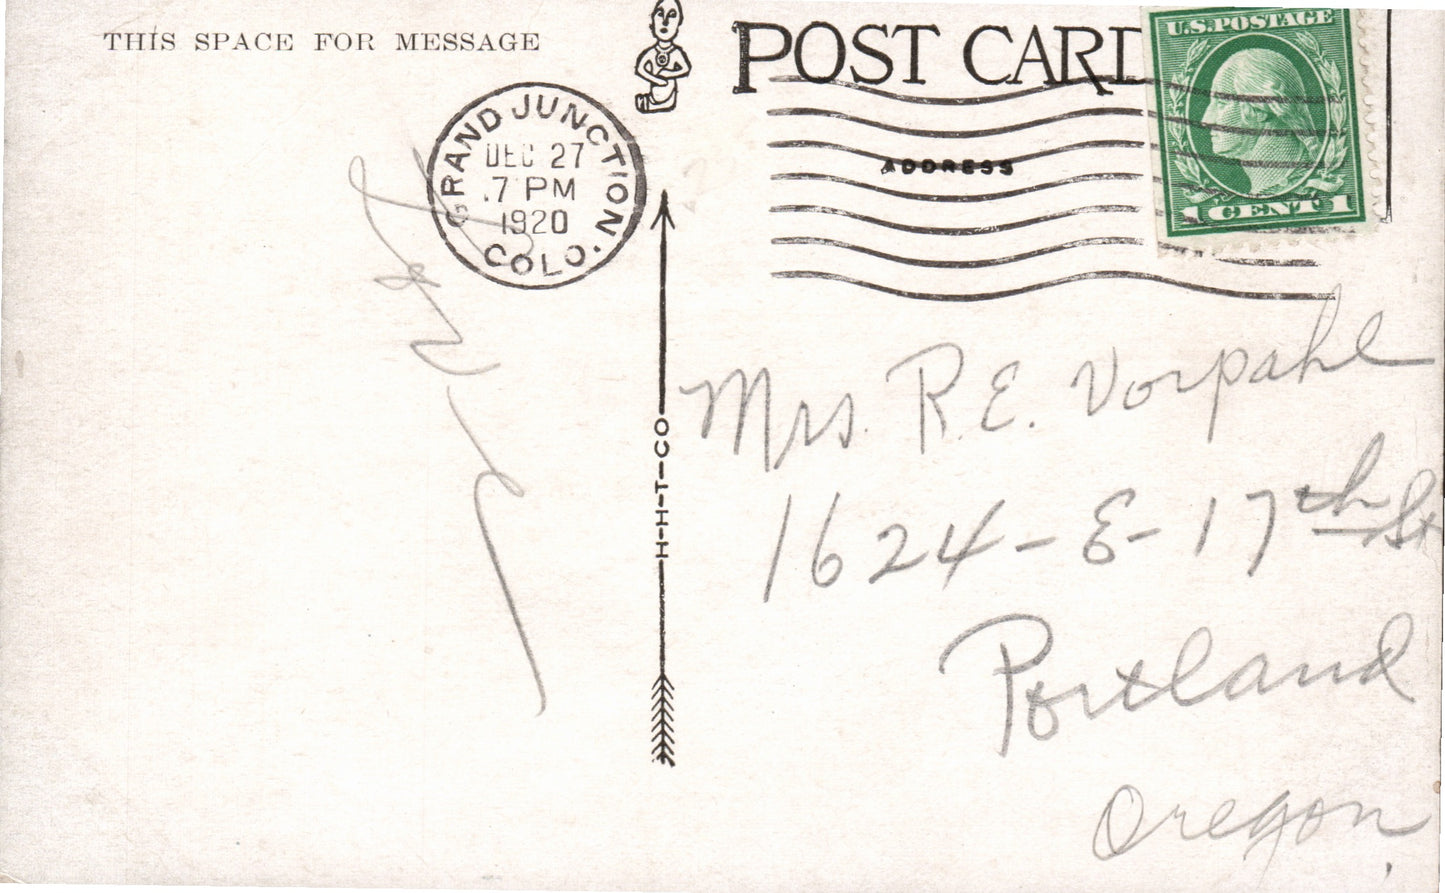 THIS SPACE FOR MESSAGE
POST CARD
U.S. POSTAGE
1 CENT 1
GRAND JUNCTION
DEC 27
7 PM
1920
COLO.
ADDRESS
H-H-T-CO
Mrs. R. E. Vorpahl
1624 - E - 17th St
Portland
Oregon,